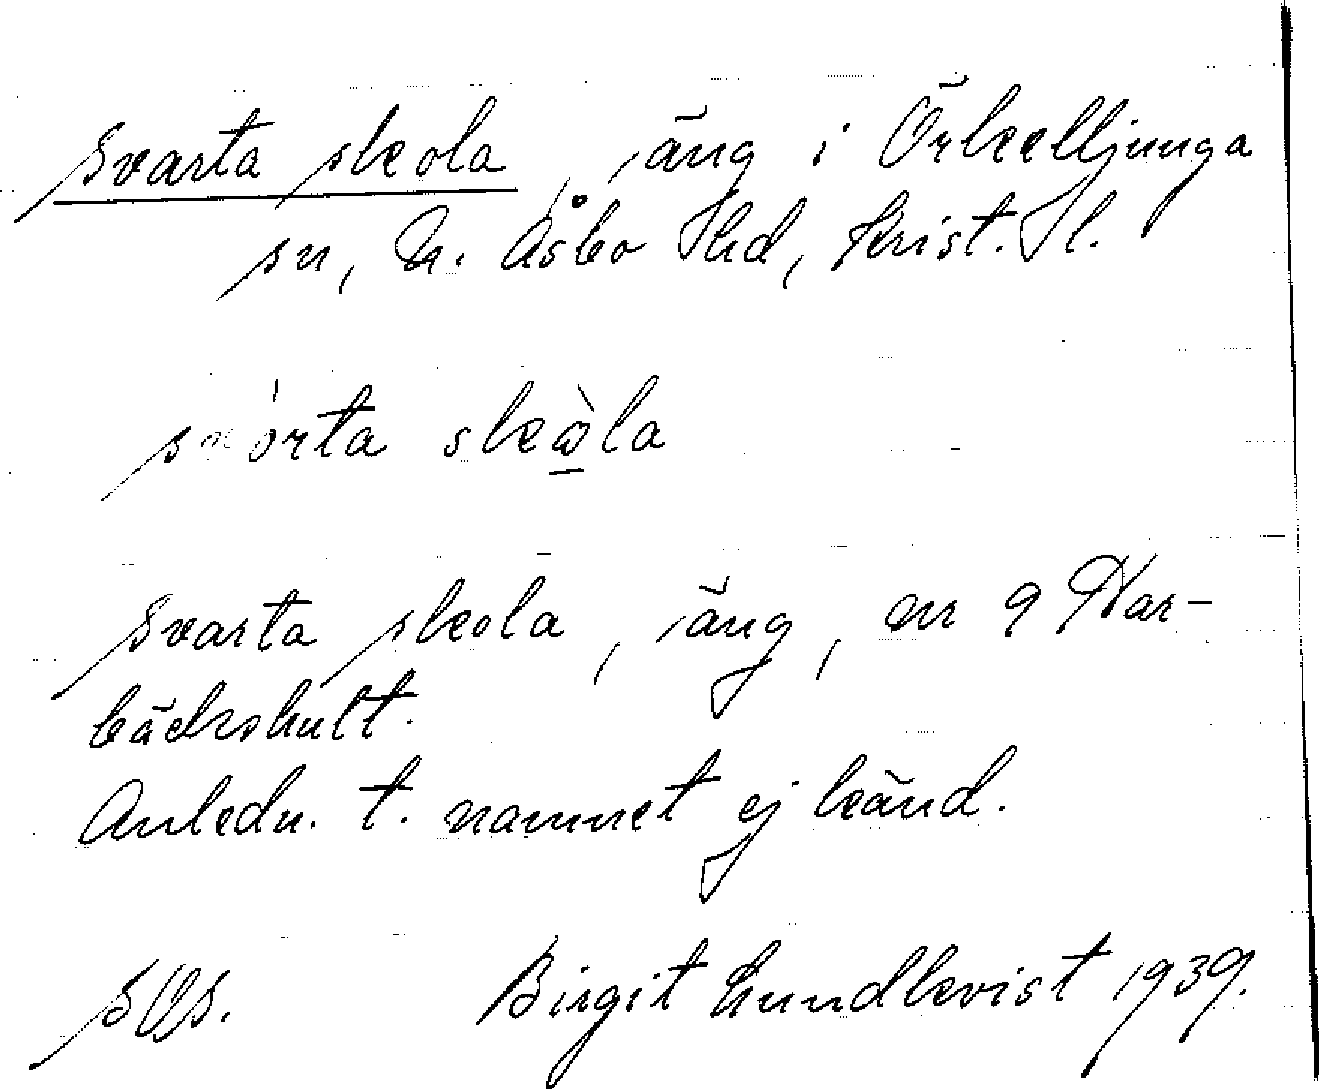 Svarta skola, äng i Örkelljunga
sn, N. Åsbo Hd, Krist. l.
svàrta skòla
Svarta skola, äng, en 9 Har-
bäckshult.
Anledn. t. namnet ej känd.
Birgit Lundkvist 1939.